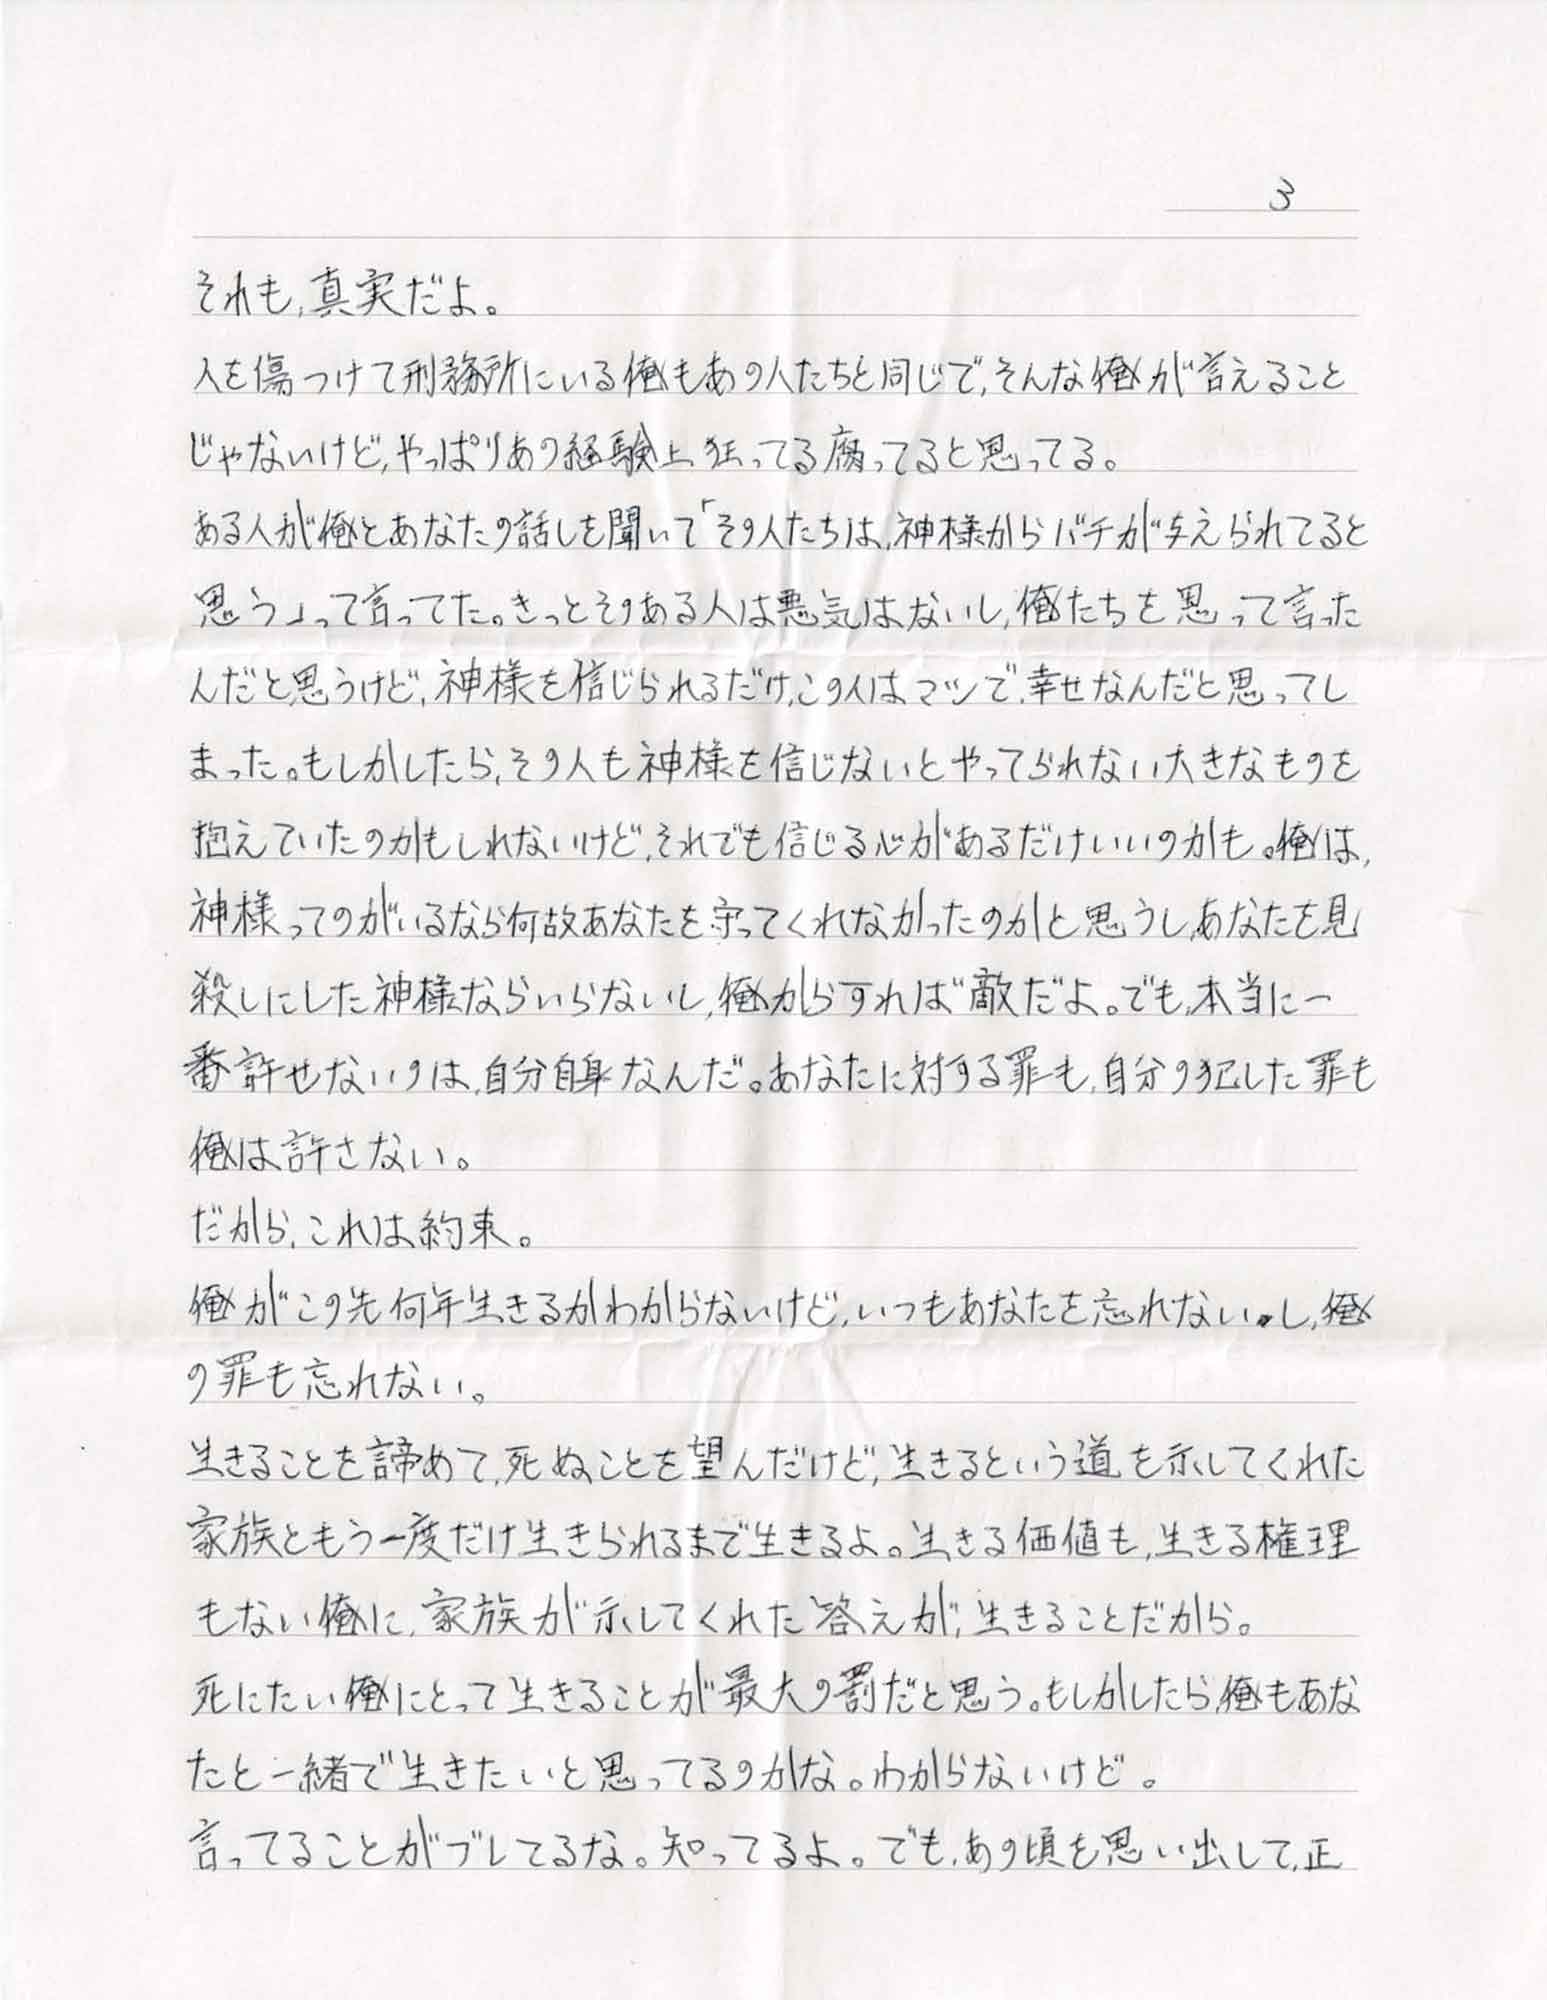 3
それも、真実だよ。
人を傷つけて刑務所にいる俺もあの人たちと同じで、そんな俺が言えること
じゃないけど、やっぱりあの経験上、狂ってる腐ってると思ってる。
ある人が俺とあなたの話しを聞いて「その人たちは、神様からバチが与えられてると
思う」って言ってた。きっとそのある人は悪気はないし、俺たちを思って言った
んだと思うけど、神様を信じられるだけ、この人はマシで、幸せなんだと思ってし
まった。もしかしたら、その人も神様を信じないとやってられない大きなものを
抱えていたのかもしれないけど、それでも信じる心があるだけいいのかも。俺は、
神様ってのがいるなら何故あなたを守ってくれなかったのかと思うし、あなたを見
殺しにした神様ならいらないし、俺からすれば敵だよ。でも、本当に一
番許せないのは、自分自身なんだ。あなたに対する罪も、自分の犯した罪も
俺は許さない。
だから、これは約束。
俺がこの先何年生きるかわからないけど、いつもあなたを忘れないし、俺
の罪も忘れない。
生きることを諦めて、死ぬことを望んだけど、生きるという道を示してくれた
家族ともう一度だけ生きられるまで生きるよ。生きる価値も、生きる権理
もない俺に、家族が示してくれた答えが、生きることだから。
死にたい俺にとって生きることが最大の罰だと思う。もしかしたら、俺もあな
たと一緒で生きたいと思ってるのかな。わからないけど。
言ってることがブレてるな。知ってるよ。でも、あの頃を思い出して、正